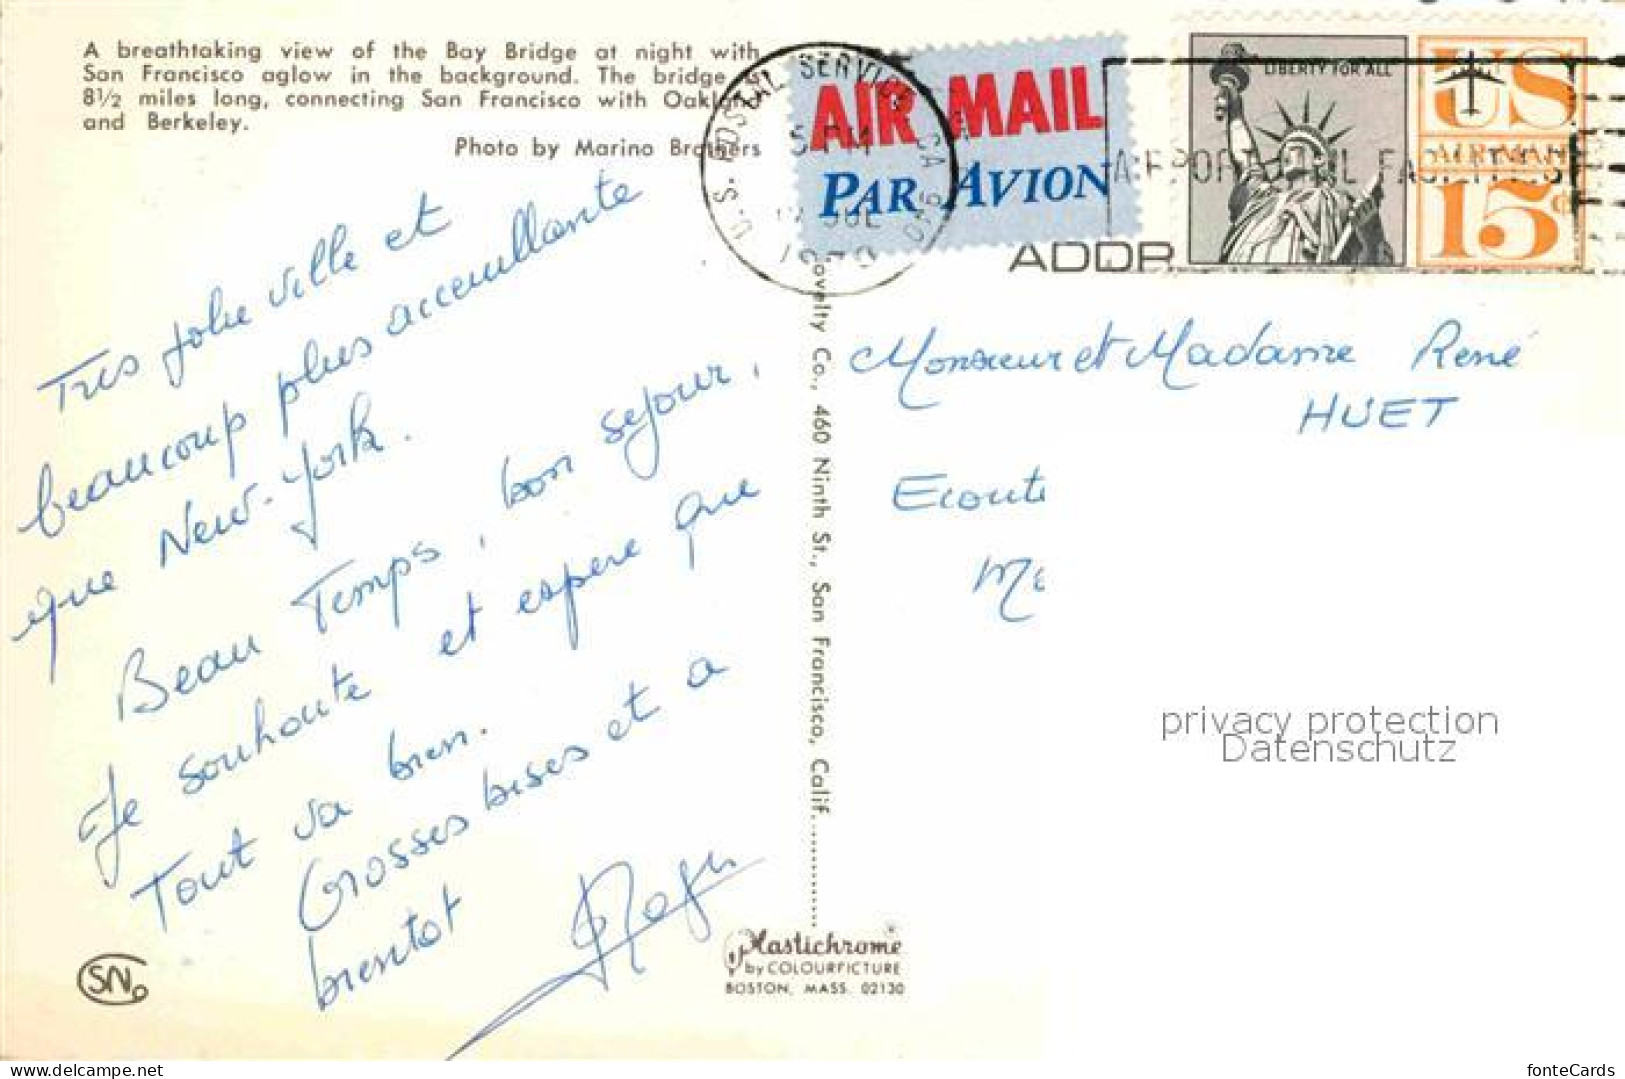 A breathtaking view of the Bay Bridge at night with
San Francisco aglow in the background. The bridge is
8½ miles long, connecting San Francisco with Oakland
and Berkeley.
Photo by Marino Brothers
Très jolie ville et
beaucoup plus accueillante
que New-York.
Beau Temps, bon séjour,
Je souhaite et espère que
Tout va bien.
Grosses bises et a
bientot
Roger
SN
Plastichrome
by COLOURPICTURE
BOSTON, MASS. 02130
Novelty Co., 460 Ninth St., San Francisco, Calif.
U.S. POSTAL SERVICE CA 940
5 PM
JUL
AIR MAIL
PAR AVION
ADDR
LIBERTY FOR ALL
US
AIR MAIL
15¢
Monsieur et Madame René
HUET
privacy protection
Datenschutz
ansichtskarten-center.de
fonteCards